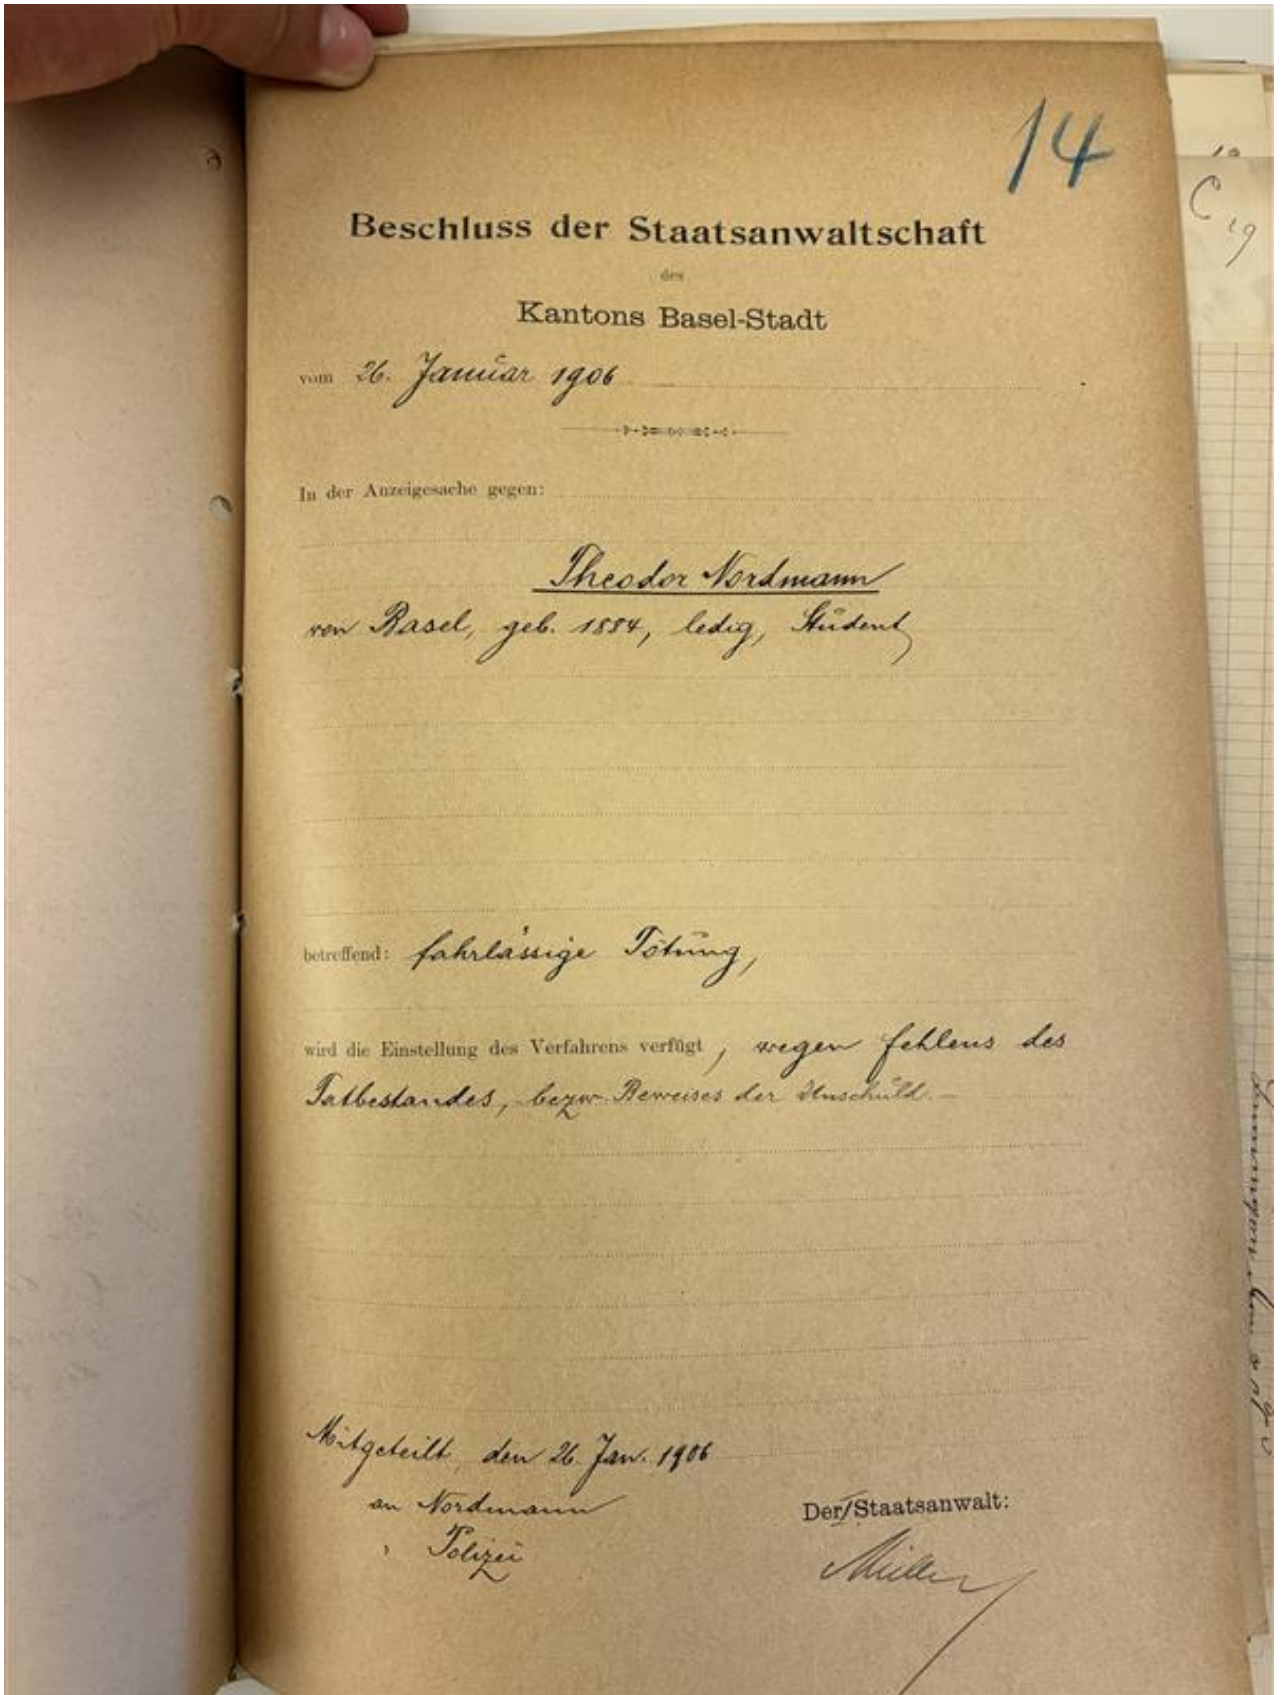 14
Beschluss der Staatsanwaltschaft
des
Kantons Basel-Stadt
vom 26. Januar 1906
In der Anzeigesache gegen:
Theodor Nordmann
von Basel, geb. 1884, ledig, Student
betreffend: fahrlässige Tötung,
wird die Einstellung des Verfahrens verfügt, wegen fehlens des
Tatbestandes, bezw. Beweises der Unschuld. —
Mitgeteilt, den 26. Jan. 1906
an Nordmann
" Polizei
Der I Staatsanwalt:
Müller
C 19